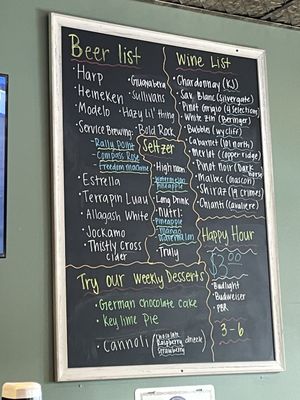 Beer list
• Harp
• Heineken
• Modelo
• Service Brewing:
- Rally Point
- Compass Rose
- Freedom Machine
• Estrella
• Terrapin Luau
• Allagash White
• Jockamo
• Thistly Cross
cider
• Guayabera
• Sullivans
• Hazy Lil' Thing
• Bold Rock
Seltzer
• High noon
watermelon
pineapple
• Long Drink
• Nutrl:
Pineapple
Mango
Watermelon
• Truly
Wine List
• Chardonnay (KJ)
• Sav. Blanc (Silvergate)
• Pinot Grigio (4 Selection)
• White Zin (Beringer)
• Bubbles (wycliff)
• Cabernet (101 north)
• Merlot (copper ridge)
• Pinot Noir (Dark
Horse)
• Malbec (conocoli)
• Shiraz (19 crimes)
• Chianti (cavaliere)
Happy Hour
$3.00
• Budlight
• Budweiser
• PBR
3 - 6
Try our weekly Desserts
• German chocolate cake
• Key lime Pie
• Cannoli (chocolate
Raspberry drizzle)
Strawberry